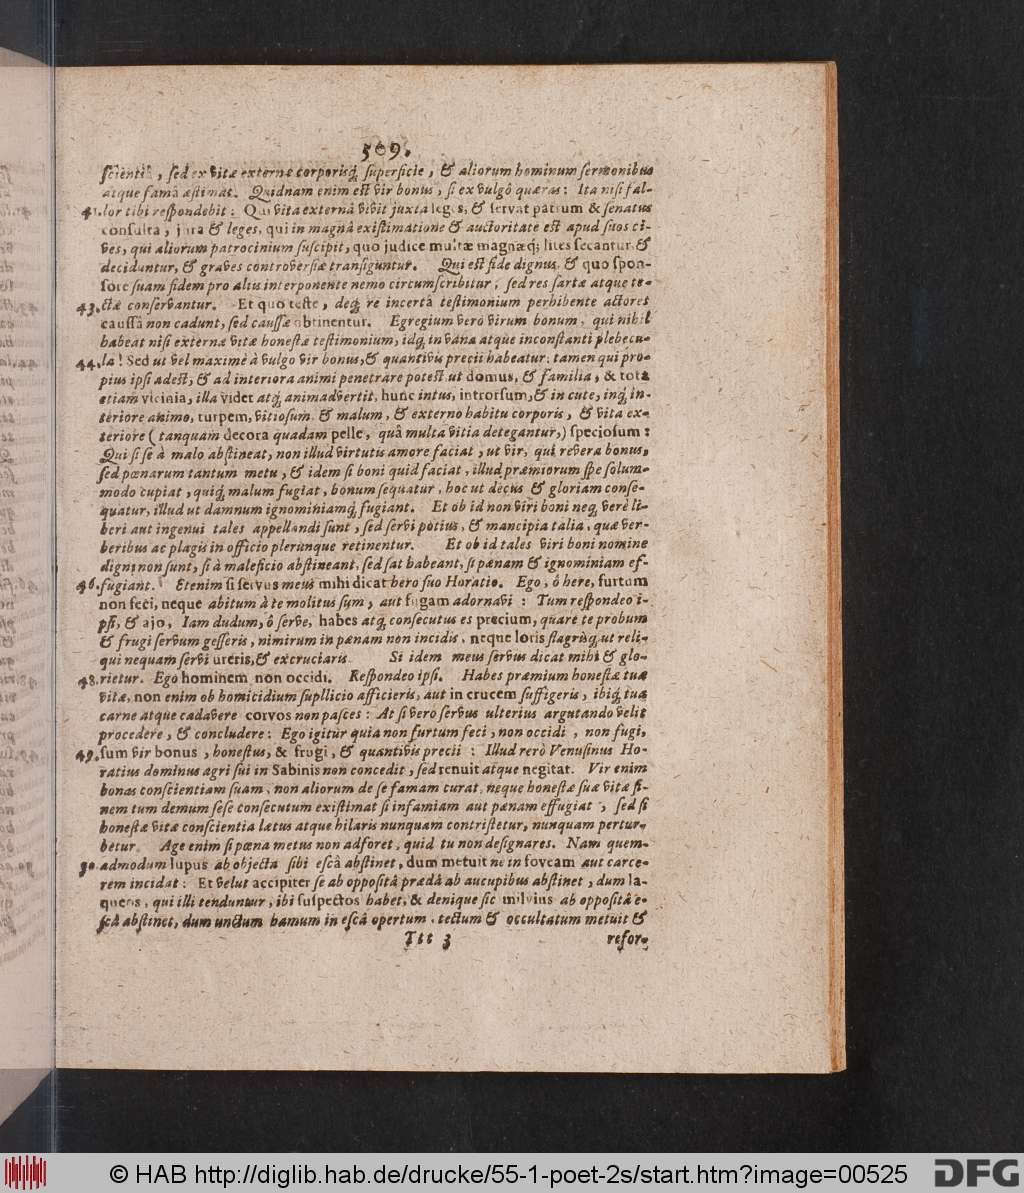 509.
scientiâ, sed ex vitæ externæ corporisq́; superficie, & aliorum hominum sermonibus
atque famâ æstimat. Quidnam enim est vir bonus, si ex vulgô quæras: Ita nisi fal-
41. lor tibi respondebit: Qui vita externâ vivit juxta leges, & servat patrum & senatus
consulta, jura & leges, qui in magnâ existimatione & auctoritate est apud suos ci-
ves, qui aliorum patrocinium suscipit, quo judice multæ magnæq́; lites secantur & 
deciduntur, & graves controversiæ transiguntur. Qui est fide dignus & quo spon-
sore suam fidem pro aliis interponente nemo circumscribitur, sed res sartæ atque te-
43. ctæ conservantur. Et quo teste, deq́; re incertâ testimonium perhibente actores
caussâ non cadunt, sed caussæ obtinentur. Egregium verò virum bonum, qui nihil
habeat nisi externæ vitæ honestæ testimonium, idq́; in vana atque inconstanti plebecu-
44. la! Sed ut vel maximè à vulgo vir bonus, & quantivis precii habeatur: tamen qui pro-
pius ipsi adest, & ad interiora animi penetrare potest ut domus, & familia, & tota
etiam vicinia, illa videt atq́; animadvertit, hunc intus, introrsum, & in cute, inq́; in-
teriore animo, turpem, vitiosum & malum, & externo habitu corporis, & vita ex-
teriore (tanquam decora quadam pelle, quâ multa vitia detegantur,) speciosum:
Qui si se à malo abstineat, non illud virtutis amore faciat, ut vir, qui reverâ bonus,
sed pœnarum tantum metu, & idem si boni quid faciat, illud præmiorum spe solum-
modo cupiat, quiq́; malum fugiat, bonum sequatur, hoc ut decus & gloriam conse-
quatur, illud ut damnum ignominiamq́; fugiant. Et ob id non viri boni neq́; verè li-
beri aut ingenui tales appellandi sunt, sed servi potius, & mancipia talia, quæ ver-
beribus ac plagis in officio plerunque retinentur. Et ob id tales viri boni nomine
digni non sunt, si à maleficio abstineant, sed sat habeant, si pœnam & ignominiam ef-
46. fugiant. Etenim si servus meus mihi dicat hero suo Horatio. Ego, ô here, furtum
non feci, neque abitum à te molitus sum, aut fugam adornavi: Tum respondeo i-
psi, & ajo, Iam dudum, ô serve, habes atq́; consecutus es precium, quare te probum
& frugi servum gesseris, nimirum in pœnam non incidis, neque loris flagrisq́; ut reli-
qui nequam servi ureris, & excruciaris. Si idem meus servus dicat mihi & glo-
48. rietur. Ego hominem non occidi. Respondeo ipsi. Habes præmium honestæ tuæ
vitæ, non enim ob homicidium supllicio afficieris, aut in crucem suffigeris, ibiq́; tua
carne atque cadavere corvos non pasces: At si verò servus ulterius argutando velit
procedere, & concludere: Ego igitur quia non furtum feci, non occidi, non fugi,
49. sum vir bonus, honestus, & frugi, & quantivis precii: Illud rerò Venusinus Ho-
ratius dominus agri sui in Sabinis non concedit, sed renuit atque negitat. Vir enim
bonas conscientiam suam, non aliorum de se famam curat, neque honestæ suæ vitæ fi-
nem tum demum sese consecutum existimat si infamiam aut pœnam effugiat, sed si
honestæ vitæ conscientia lætus atque hilaris nunquam contristetur, nunquam pertur-
betur. Age enim si pœna metus non adforet, quid tu non designares. Nam quem-
50. admodum lupus ab objecta sibi escâ abstinet, dum metuit ne in foveam aut carce-
rem incidat: Et velut accipiter se ab oppositâ prædâ ab aucupibus abstinet, dum la-
queos, qui illi tenduntur, ibi suspectos habet, & denique sic milvius ab oppositâ e-
scâ abstinet, dum unctum hamum in escâ opertum, tectum & occultatum metuit &
Ttt 3 refor-
© HAB http://diglib.hab.de/drucke/55-1-poet-2s/start.htm?image=00525
DFG